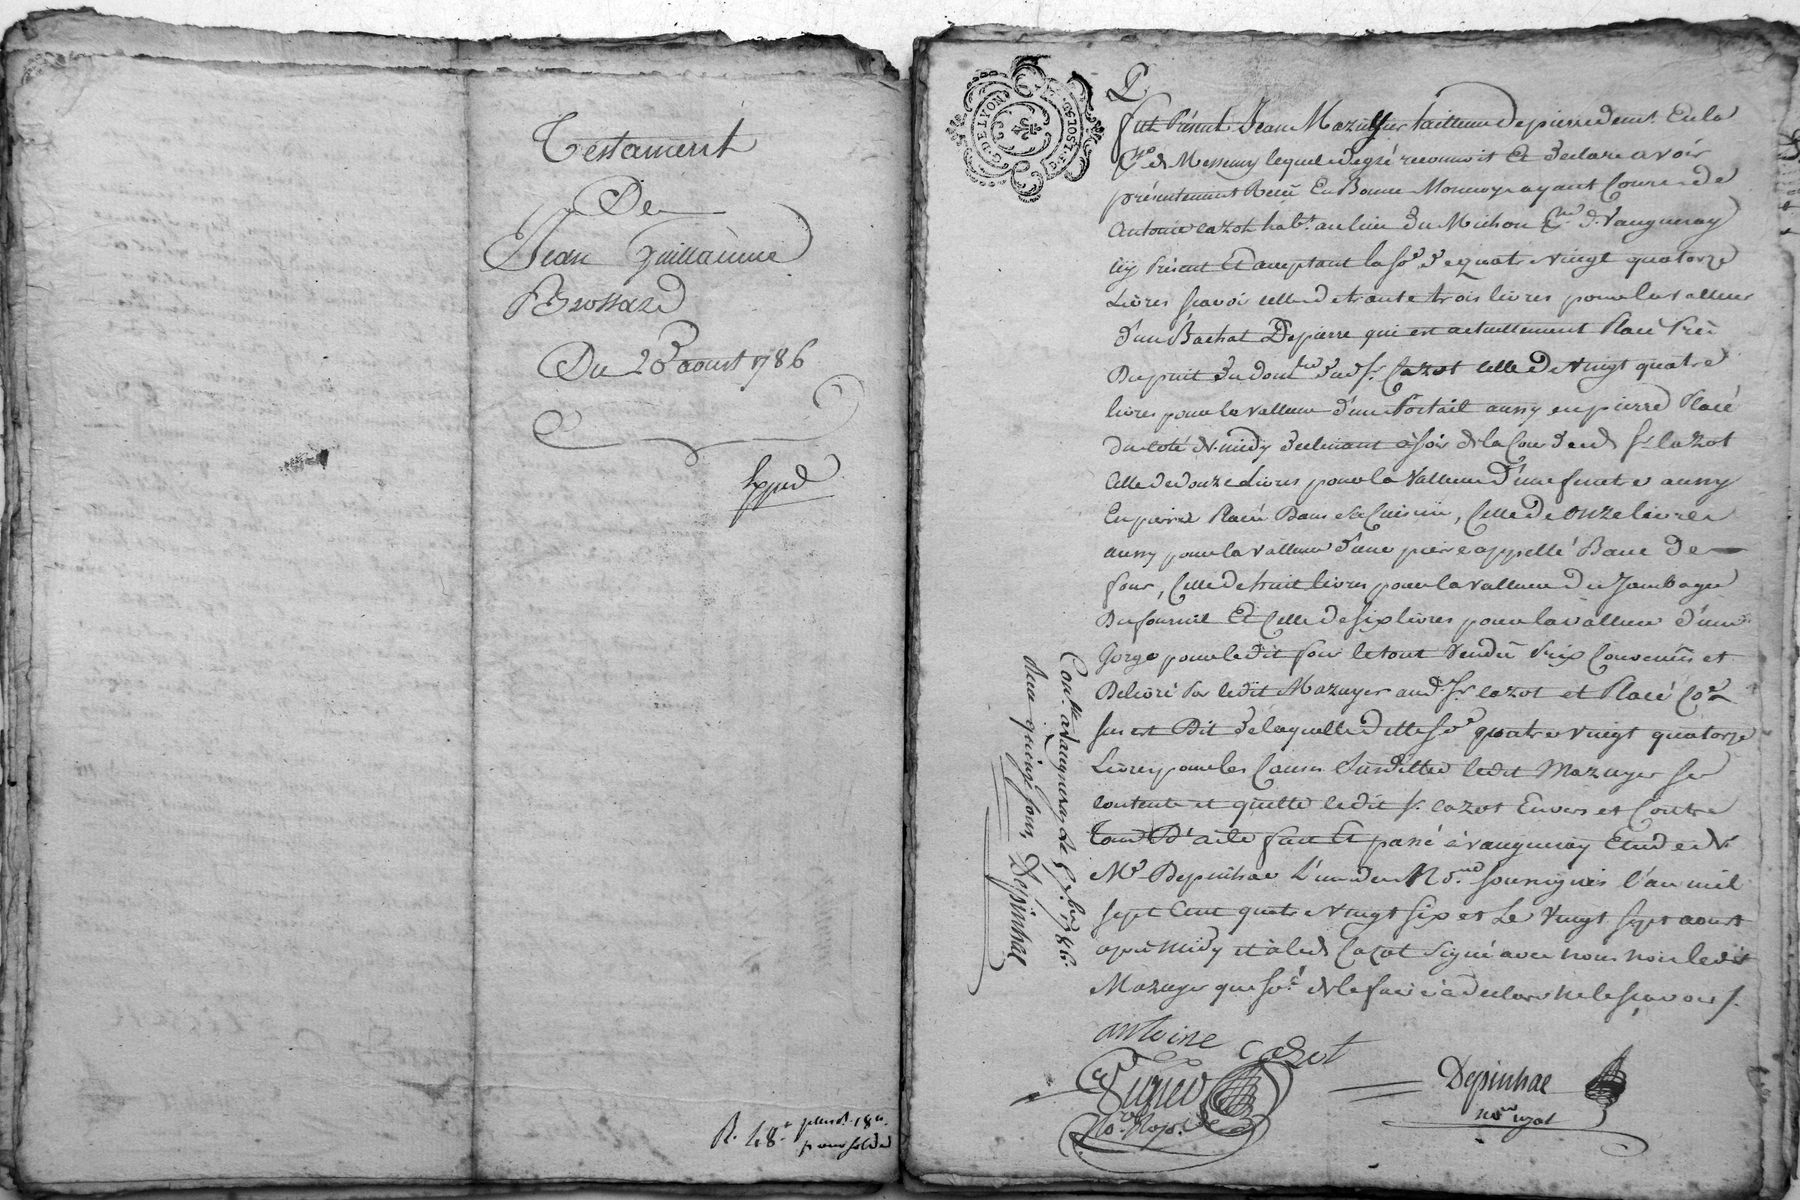 Testament
De
Jean Guillaume
Brossard
Du 28 aoust 1786
Expd
R. 48.s plus d. 18s.
pour solde
G. DE LYON
fut Présent Jean Mazuyer tailleur de pierre demt. En la
de Messimy lequel de gré reconnoit Et Declare avoir
présentement Receu En Bonne Monnoye ayant Cours de
Antoine cazot habt. au lieu du Michon d. Vaugneray
icy Présent Et acceptant la so.e de quatre vingt quatorze
Livres scavoir celle de trante trois livres pour la valleur
d'un Bachat De pierre qui est actuellement Placé Près
Du puit du dom.ne dud. sr. Cazot celle de vingt quatre
livres pour la valleur d'un Portail aussy en pierre Placé
du coté de midy declinant à soir de la Cour dud. sr. cazot
Celle de douze Livres pour la valleur d'une fenetre aussy
En pierre Placée Dans sa Cuisine, Celle de onze livres
aussy pour la valleur d'une pierre appellé Banc de
four, Celle de huit livres pour la valleur du Jambage
Du fournil Et Celle de six livres pour la valleur d'une
Gorge pour le dit four le tout vendu Prix Convenus et
Delivré Par ledit Mazuyer aud. sr. cazot et Placé Co.e
sus est Dit de laquelle ditte so.e quatre vingt quatorze
Livres pour les Causes Susdittes ledit Mazuyer se
contente et quitte ledit sr. cazot Envers et Contre
Tous D'acte fait Et passé à vaugneray Etude de
Me. Depinhac L'un des No.res soussignés l'an mil
sept Cent quatre vingt six et Le Vingt sept aoust
après midy et a led. Cazot Signé avec nous non ledit
Mazuyer que so.é de le faire a declaré ne le scavoir /.
antoine cazot
Depinhac
no.re royal
No.re Roy.
Con.lé a Vaugneray le 7bre 1786.
Receu quinze sous Depinhac